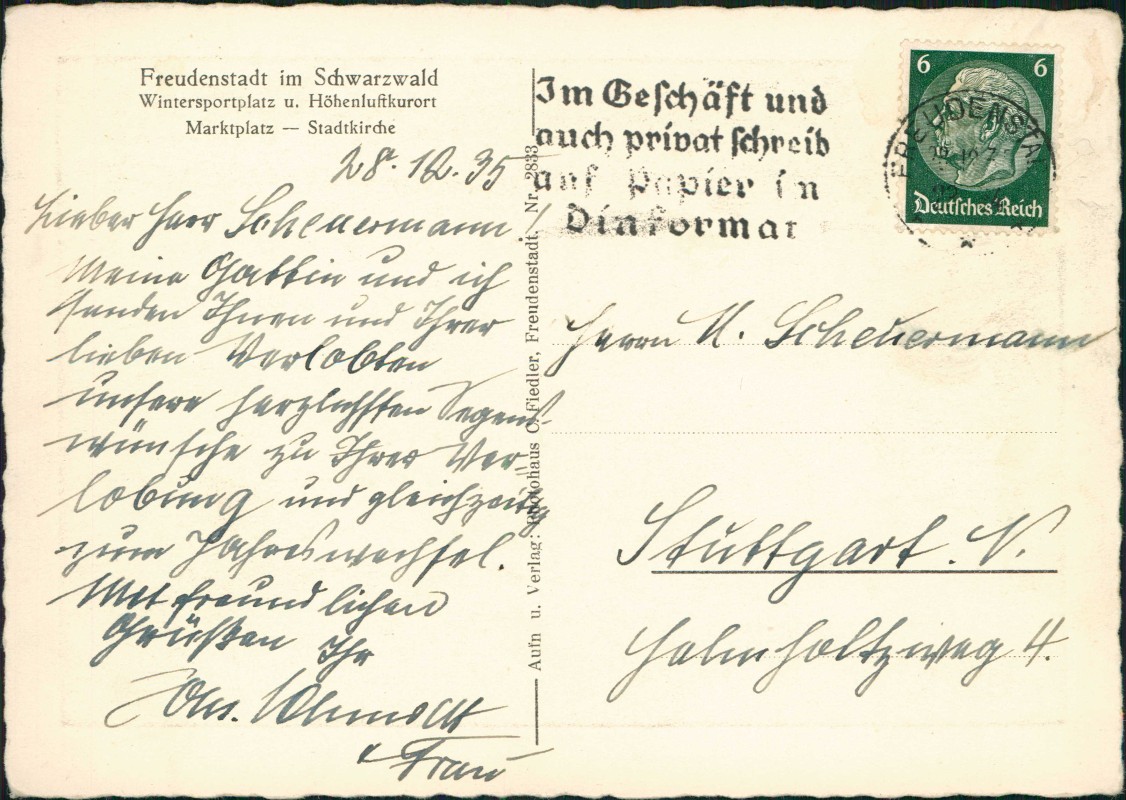 Freudenstadt im Schwarzwald
Wintersportplatz u. Höhenluftkurort
Marktplatz — Stadtkirche
28. 12. 35
Lieber Herr Scheuermann!
Meine Gattin und ich
senden Ihnen und Ihrer
lieben Verlobten
unsere herzlichsten Segens-
wünsche zu Ihrer Ver-
lobung und gleichzeitig
zum Jahreswechsel.
Mit freundlichen
Grüßen Ihr
Frau
Aufn u. Verlag: Photohaus O. Fiedler, Freudenstadt, Nr. 2833
Im Geschäft und
auch privat schreib
auf Papier in
Dinformat
6 6
FREUDENSTADT
Deutsches Reich
Herrn M. Scheuermann
Stuttgart. N.
Helmholtzweg 4.